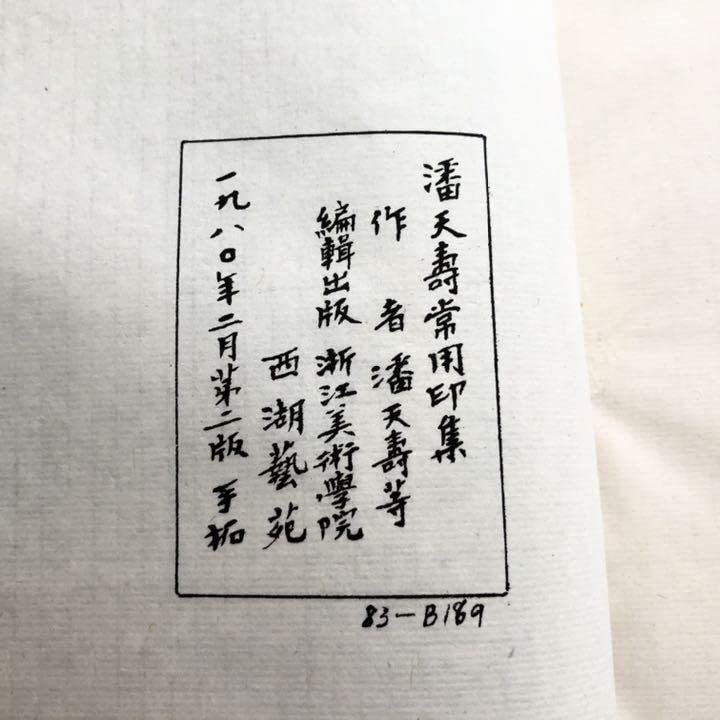 潘天壽常用印集
作者潘天壽等
編輯出版浙江美術學院
西湖藝苑
一九八〇年二月第二版手拓
83-B189